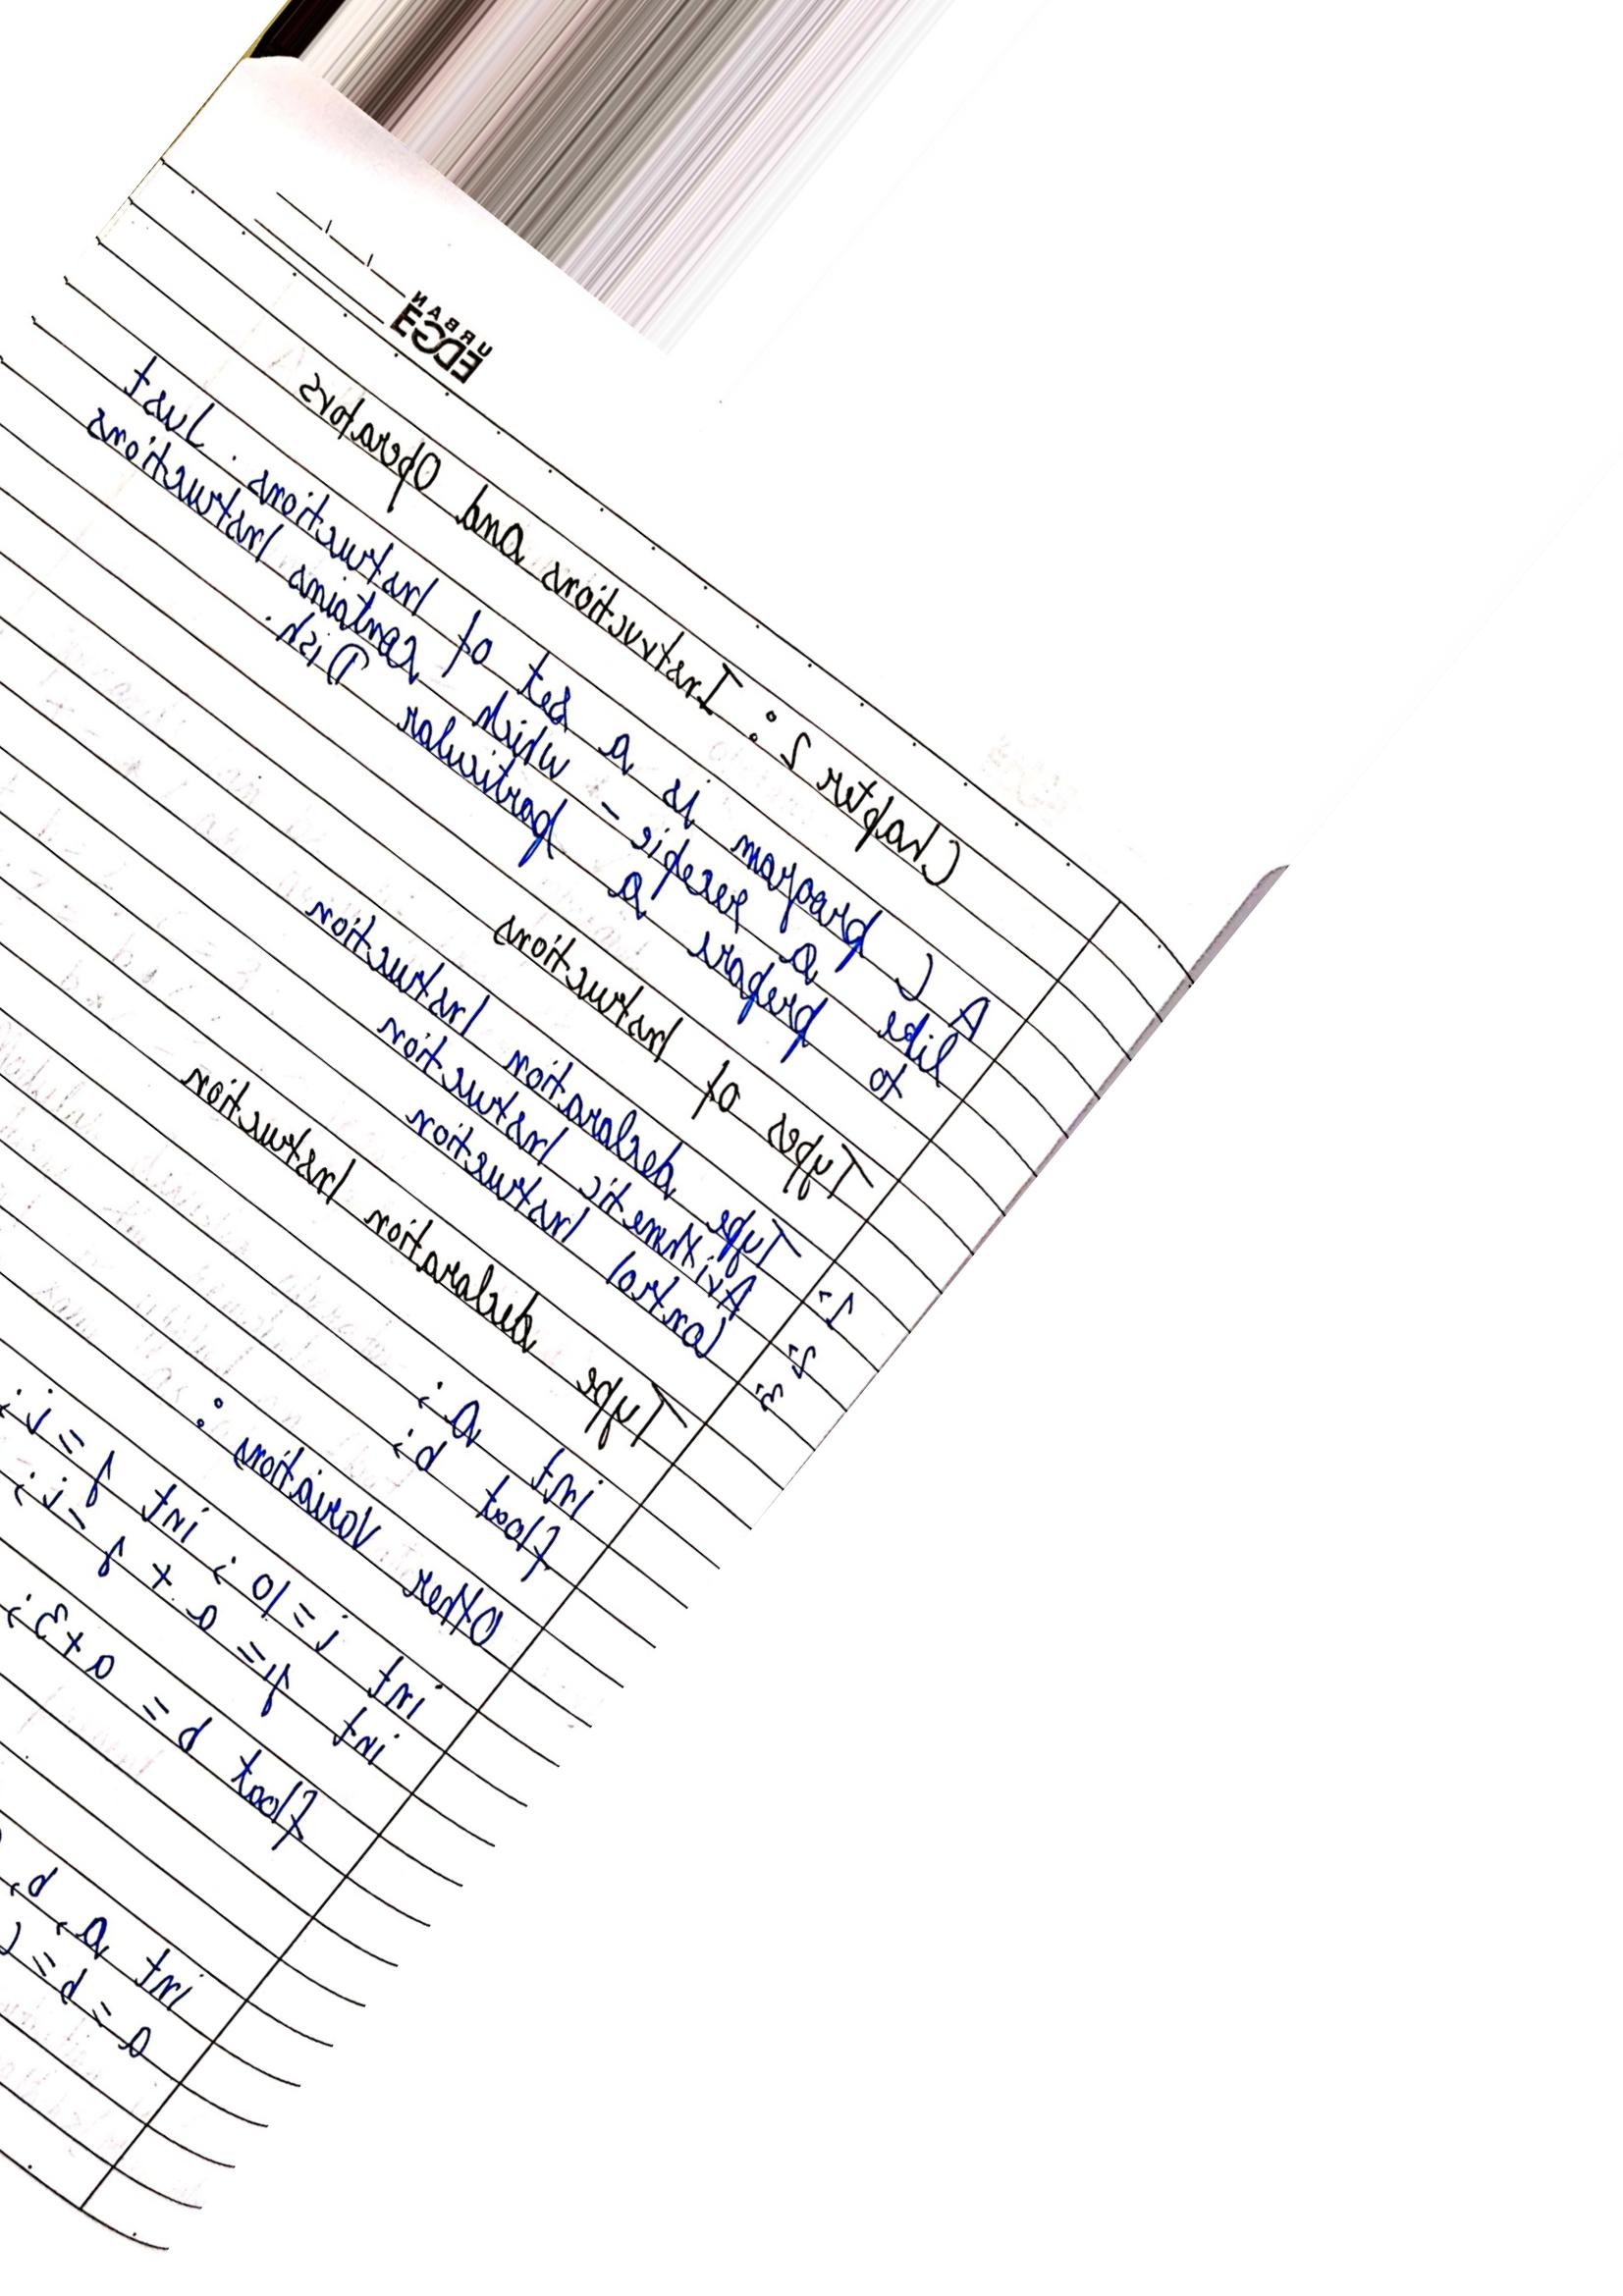 URBAN
EDGE
Chapter 2: Instructions and Operators
A C program is a set of Instructions. Just
like a recepie - which contains Instructions
to prepare a particular Dish.
Types of Instructions
1. Type declaration Instruction
2. Arithmetic Instruction
3. Control Instruction
Type declaration Instruction
int a;
float b;
Other Variations:
int i = 10; int j = i;
int j1 = a + j - i;
float b = a + 3;
int a, b,
a = b =